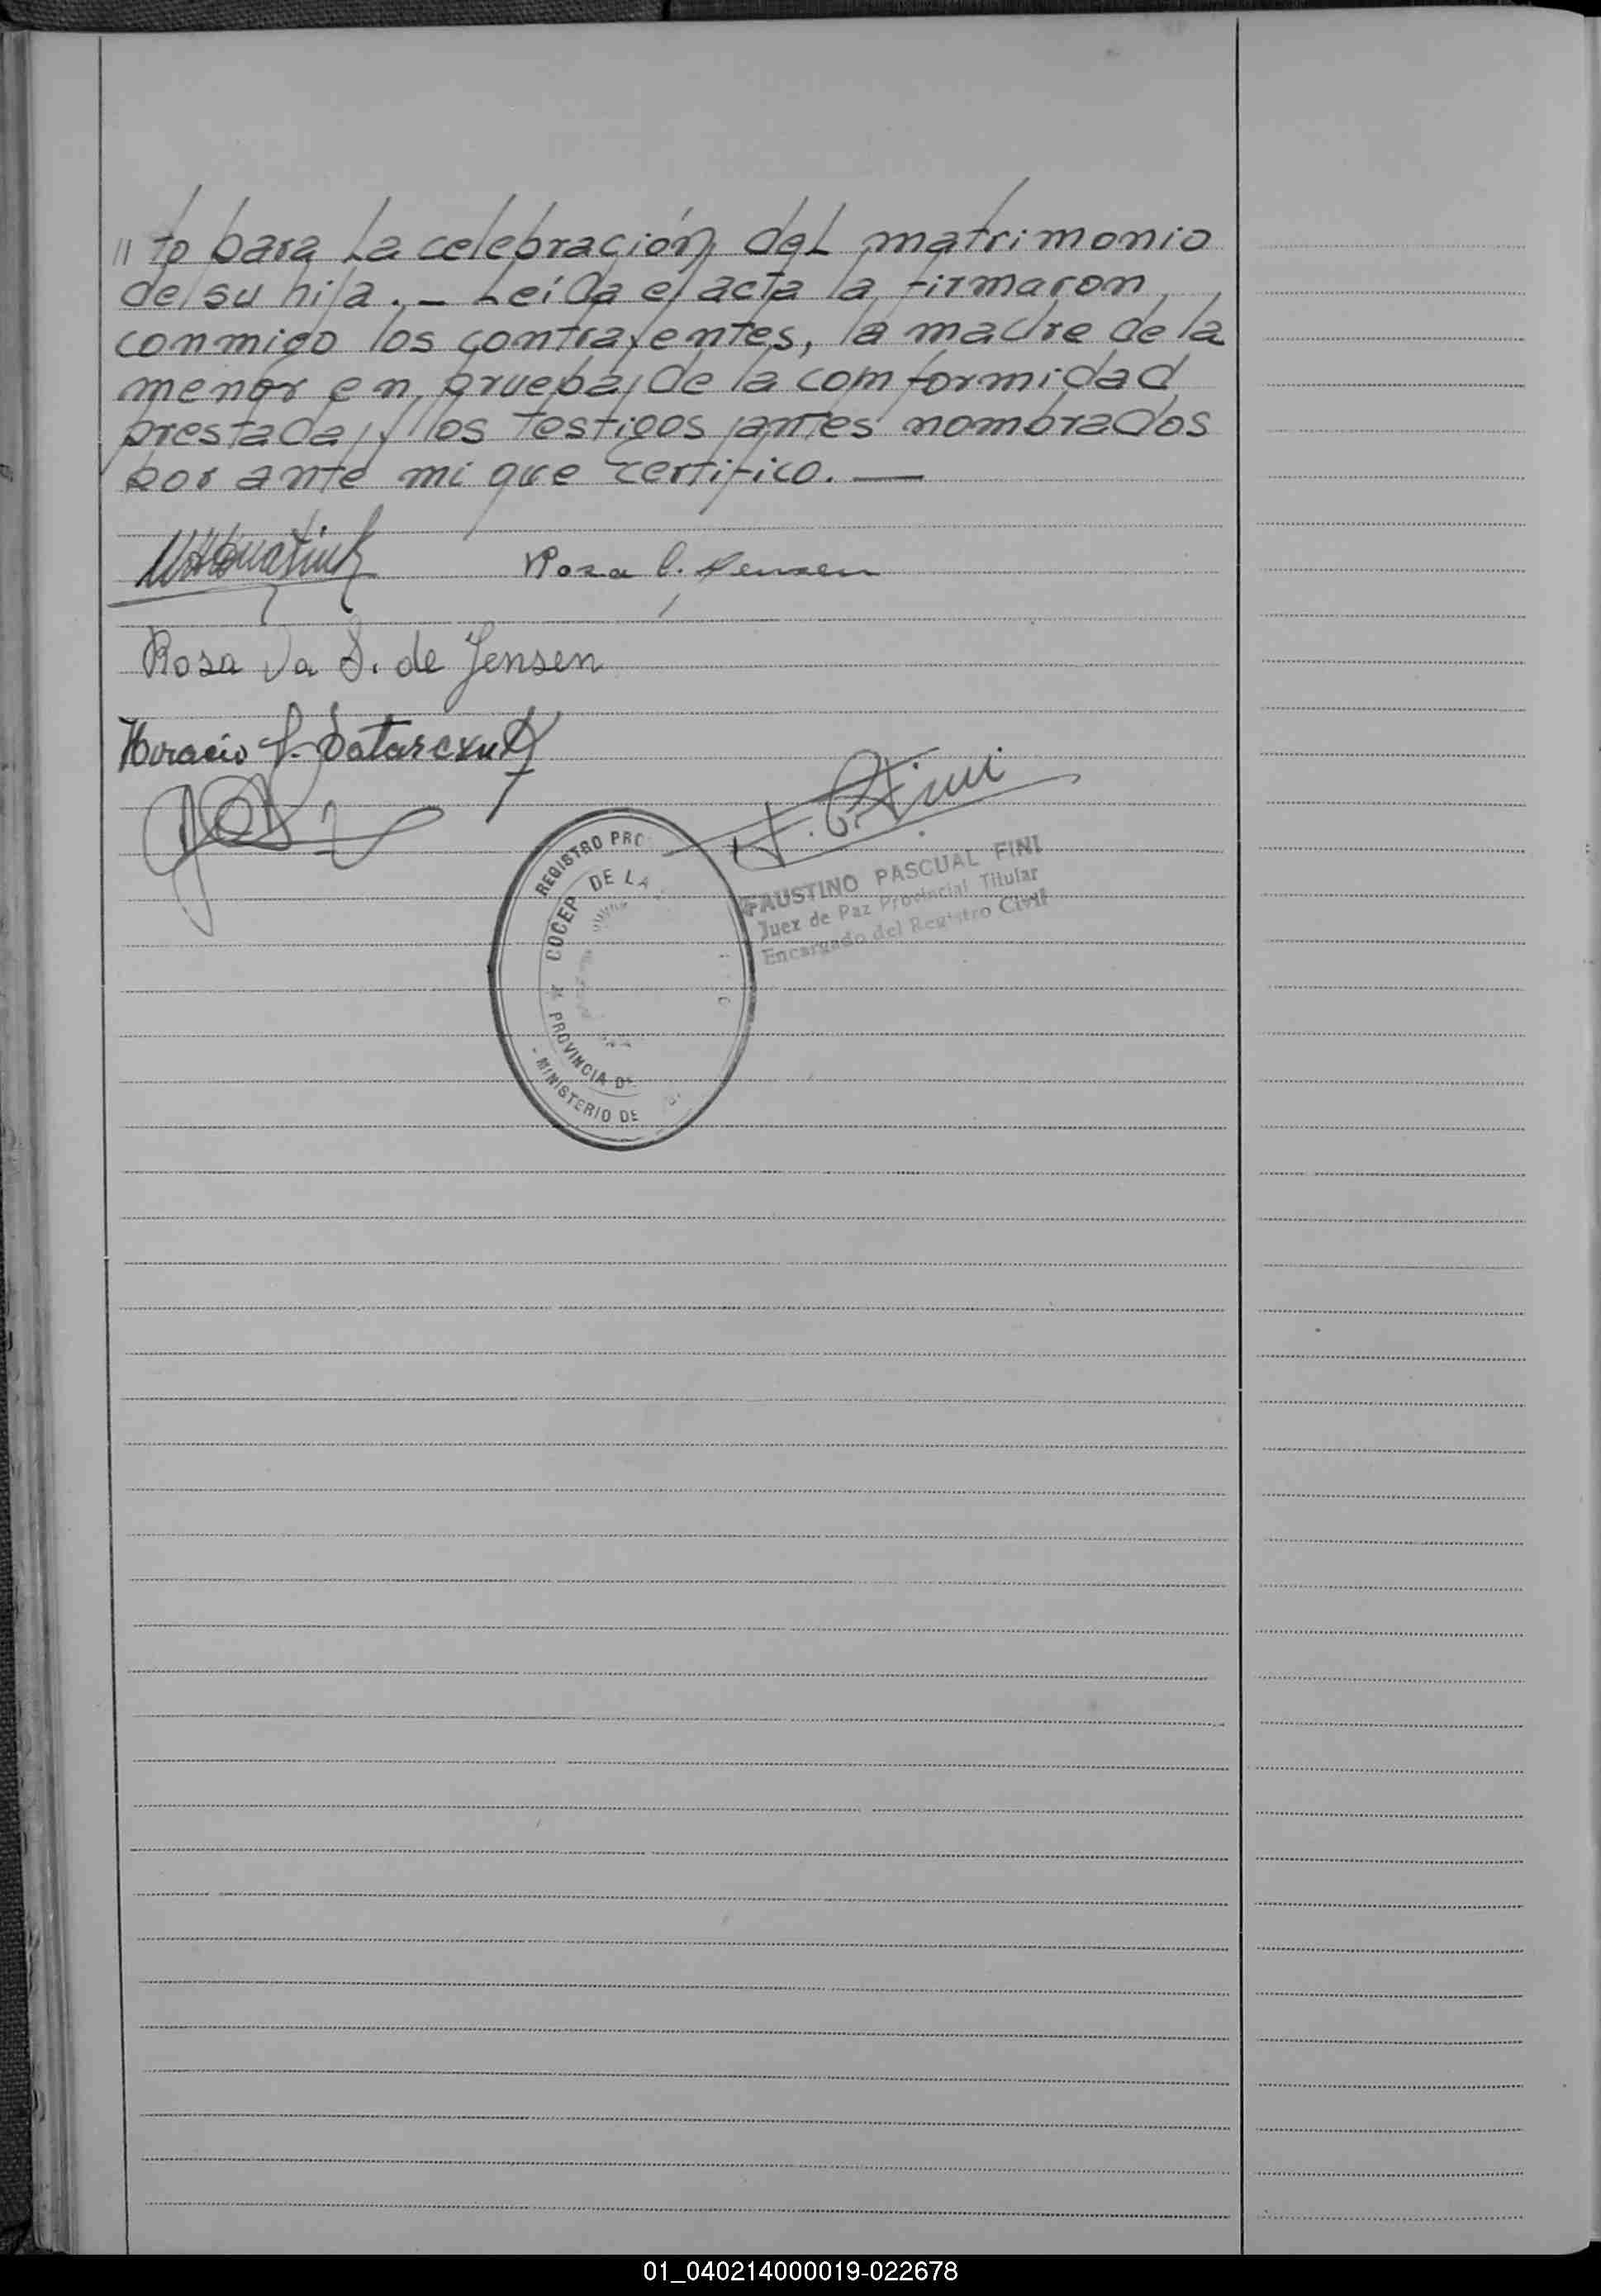 " to para La celebración del matrimonio
de su hija. — Leída el acta la firmaron
conmigo los contrayentes, la madre de la
menor en prueba de la comformidad
prestada y los testigos antes nombrados
por ante mi que certifico. —
Rosa C. Jensen
Rosa Da S. de Jensen
Horacio
F. P. Fini
REGISTRO PRO
DE LA
COCEP
PROVINCIA D
MINISTERIO DE
FAUSTINO PASCUAL FINI
Juez de Paz Provincial Titular
Encargado del Registro Civil
01_040214000019-022678